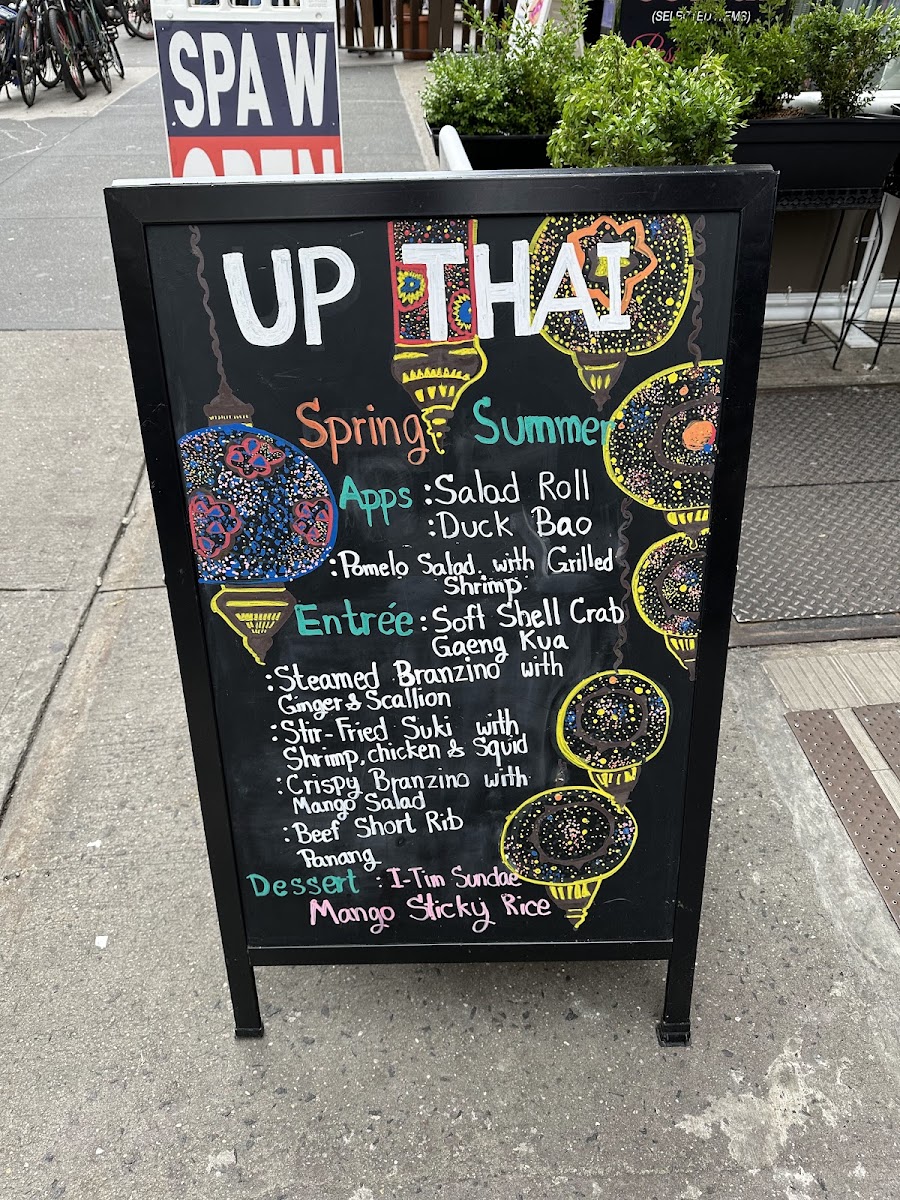 (SELECTED ITEMS)
SPA W
OPEN
UP THAI
Spring Summer
Apps :Salad Roll
:Duck Bao
:Pomelo Salad. with Grilled
Shrimp
Entrée :Soft Shell Crab
Gaeng Kua
:Steamed Branzino with
Ginger & Scallion
:Stir-Fried Suki with
Shrimp, chicken & Squid
:Crispy Branzino with
Mango Salad
:Beef Short Rib
Panang
Dessert : I-Tim Sundae
Mango Sticky Rice